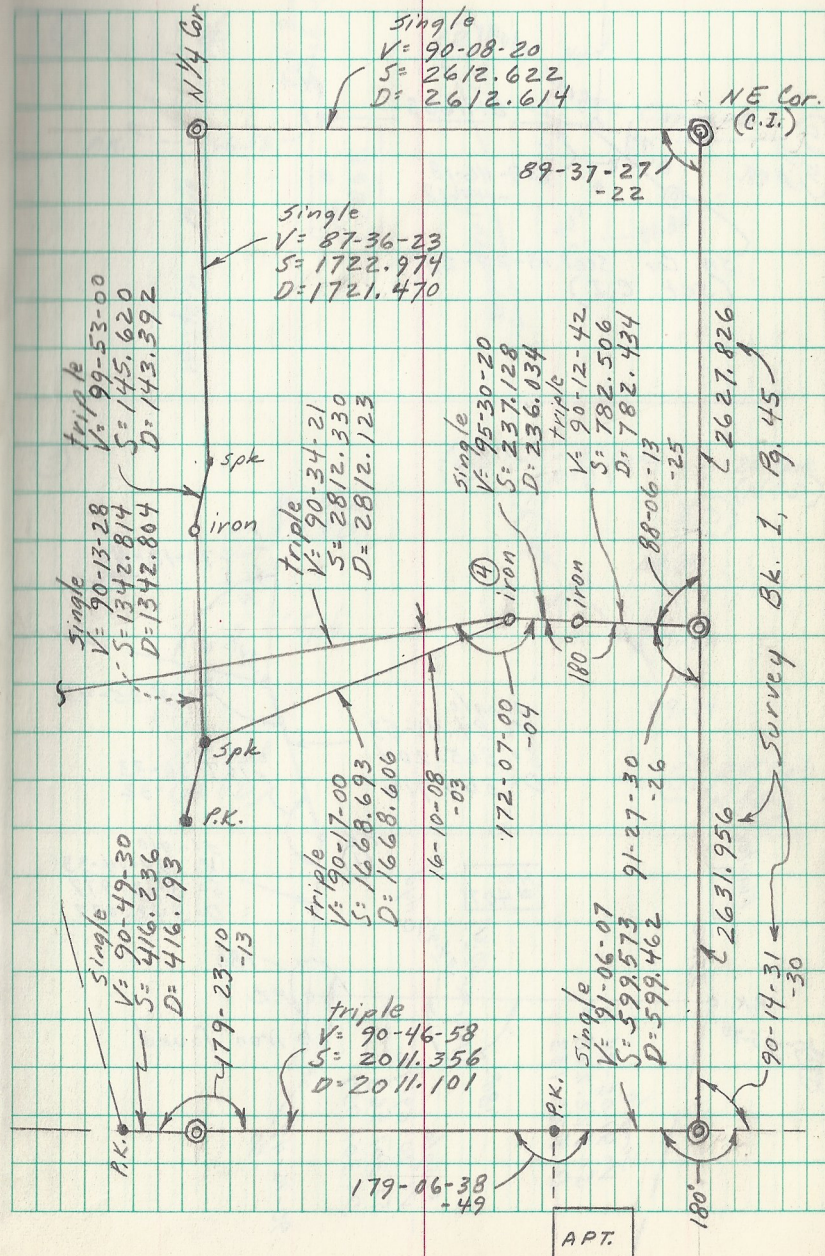 N 1/4 Cor.
Single
V= 90-08-20
S= 2612.622
D= 2612.614
NE Cor.
(C.I.)
89-37-27
-22
Single
V= 87-36-23
S= 1722.974
D= 1721.470
triple
V= 99-53-00
S= 145.620
D= 143.392
Spk
iron
Single
V= 90-13-28
S= 1342.814
D= 1342.804
triple
V= 90-34-21
S= 2812.330
D= 2812.123
Single
V= 95-30-20
S= 237.128
D= 236.034
triple
V= 90-12-42
S= 782.506
D= 782.434
88-06-13
-25
2627.826
Pg. 45
Survey Bk. 1,
4
iron
iron
180°
Spk
P.K.
triple
V= 90-17-00
S= 1668.693
D= 1668.606
16-10-08
-03
172-07-00
-04
91-27-30
-26
2631.956
90-14-31
-30
Single
V= 90-49-30
S= 416.236
D= 416.193
179-23-10
-13
triple
V= 90-46-58
S= 2011.356
D= 2011.101
Single
V= 91-06-07
S= 599.573
D= 599.462
P.K.
P.K.
179-06-38
-49
180°
APT.